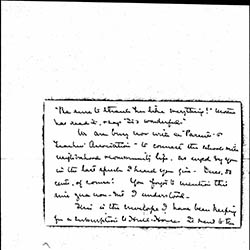 "Be sure to thank her
everything!" Mother
has read it, & says "It's wonderful."
We are busy now with a Parent-
Teacher Association - to connect the school with
neighborhood & community life, as urged by you
in the last speech I heard you give.
cents, of course! You forgot to mention this
but I understand.
This is the envelope I have been keeping
for a subscription to Hull-House. It went to the